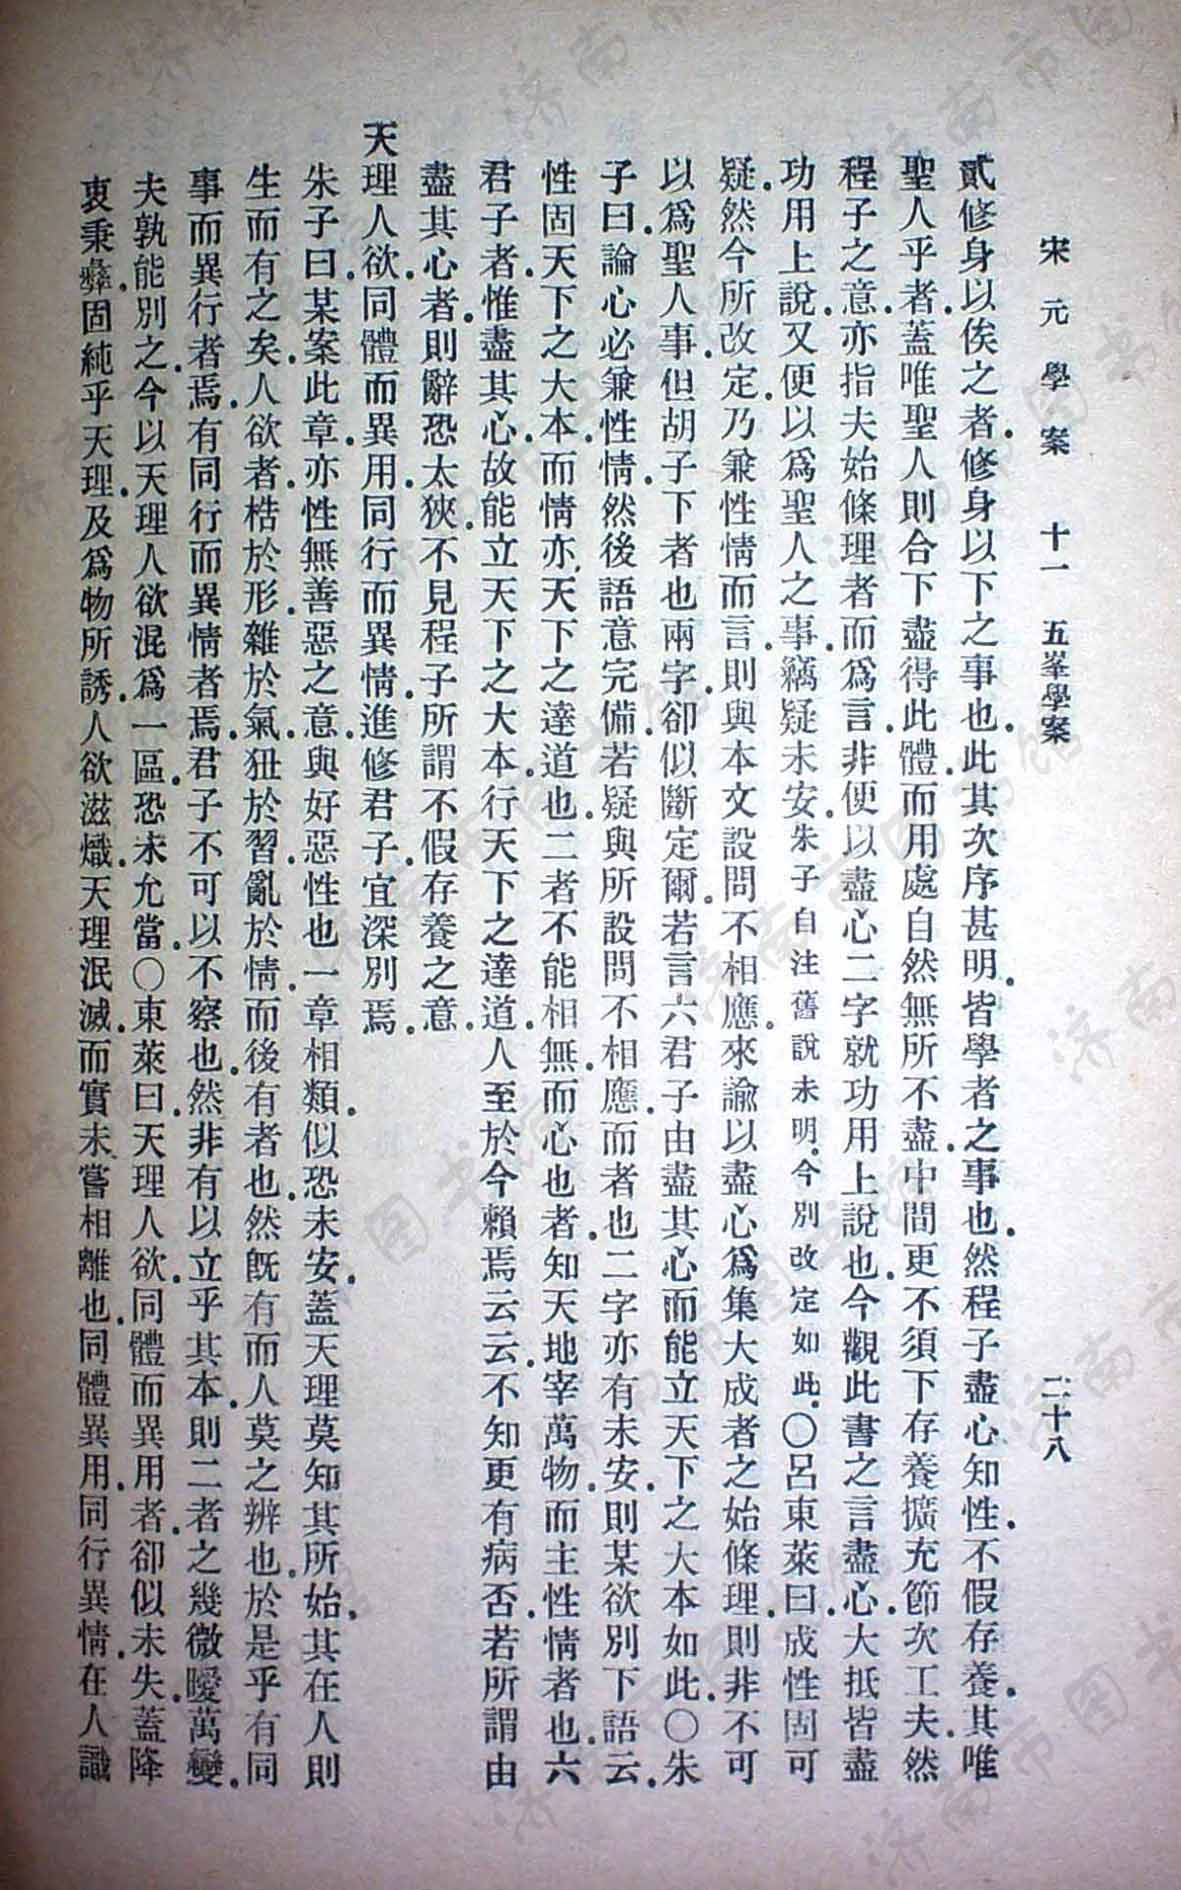 宋元學案　十一　五峯學案　二十八
貳修身以俟之者修身以下之事也此其次序甚明皆學者之事也然程子盡心知性不假存養其唯
聖人乎者蓋唯聖人則合下盡得此體而用處自然無所不盡中間更不須下存養擴充節次工夫然
程子之意亦指夫始條理者而爲言非便以盡心二字就功用上說也今觀此書之言盡心大抵皆盡
功用上說又便以爲聖人之事竊疑未安朱子自注舊說未明今別改定如此〇呂東萊曰成性固可
疑然今所改定乃兼性情而言則與本文設問不相應來諭以盡心爲集大成者之始條理則非不可
以爲聖人事但胡子下者也兩字卻似斷定爾若言六君子由盡其心而能立天下之大本如此〇朱
子曰論心必兼性情然後語意完備若疑與所設問不相應而者也二字亦有未安則某欲別下語云
性固天下之大本而情亦天下之達道也二者不能相無而心也者知天地宰萬物而主性情者也六
君子者惟盡其心故能立天下之大本行天下之達道人至於今賴焉云云不知更有病否若所謂由
盡其心者則辭恐太狹不見程子所謂不假存養之意
天理人欲同體而異用同行而異情進修君子宜深別焉
朱子曰某案此章亦性無善惡之意與好惡性也一章相類似恐未安蓋天理莫知其所始其在人則
生而有之矣人欲者梏於形雜於氣狃於習亂於情而後有者也然旣有而人莫之辨也於是乎有同
事而異行者焉有同行而異情者焉君子不可以不察也然非有以立乎其本則二者之幾微曖萬變
夫孰能別之今以天理人欲混爲一區恐未允當〇東萊曰天理人欲同體而異用者卻似未失蓋降
衷秉彝固純乎天理及爲物所誘人欲滋熾天理泯滅而實未嘗相離也同體異用同行異情在人識